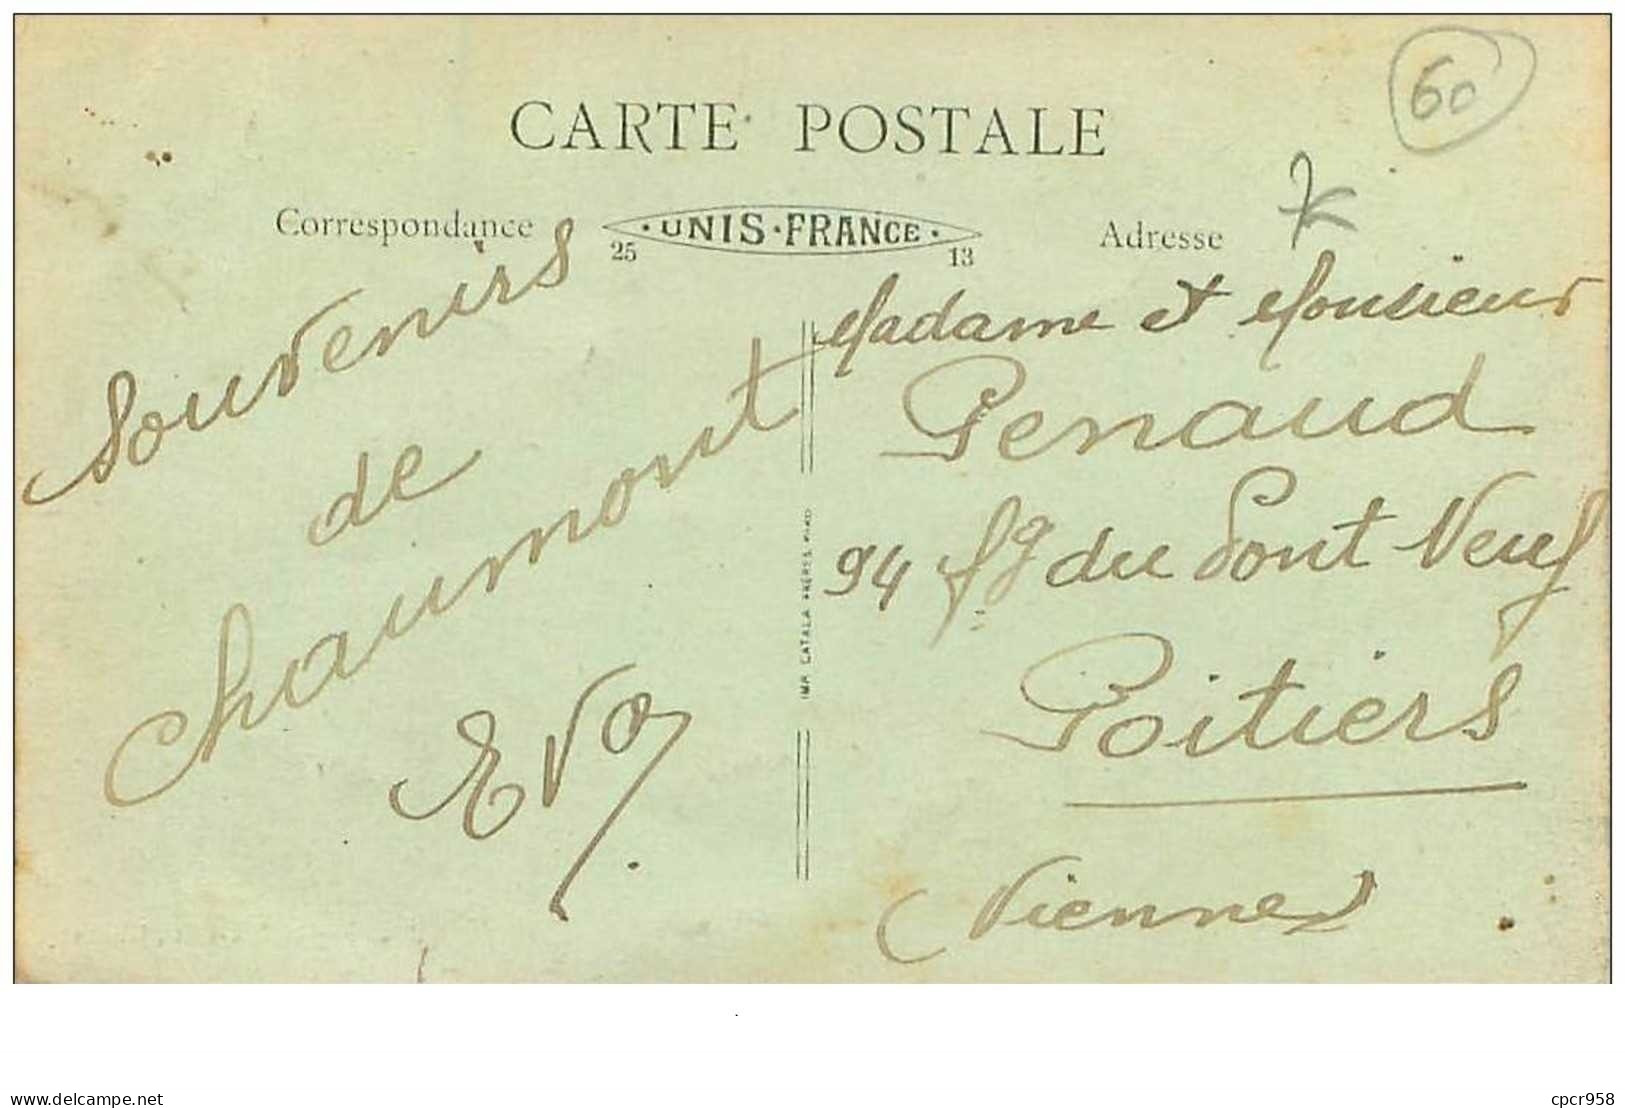 60
CARTE POSTALE
Correspondance
UNIS·FRANCE·
25 13
Adresse
Souvenirs
de
Chaumont
Eva
IMP. CATALA FRÈRES PARIS
Madame et Monsieur
Penaud
94 fg du Pont Neuf
Poitiers
(Vienne)
delcampe.net
cpcr958